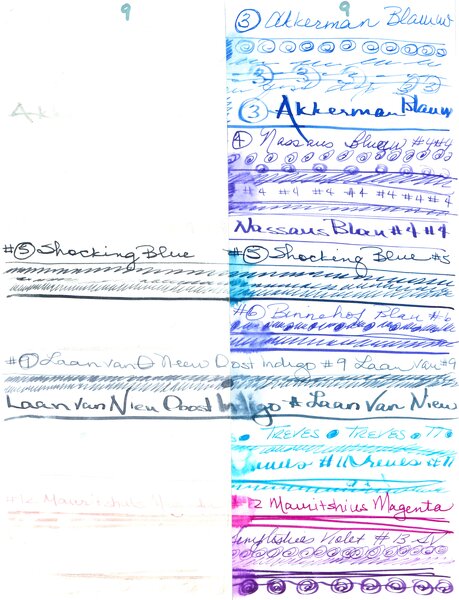 9 9
③ Akkerman Blauw
3 3 3 3 3
Akk
③ Akkerman Blauw
④ Nassaus Blauw #4 #4
#4 #4 #4 #4 #4 #4 #4
Nassaus Blau #4 #4
#⑤ Shocking Blue #⑤ Shocking Blue #5
#⑥ Binnehof Blau #6
#⑨ Laan van Nieu Oost Indigo #9 Laan Van #9
Laan Van Nieu Oost Indigo # Laan Van Nieu
TREVES TREVES TT
Treves #11
2 Mauritshuis Magenta
Violet # 13